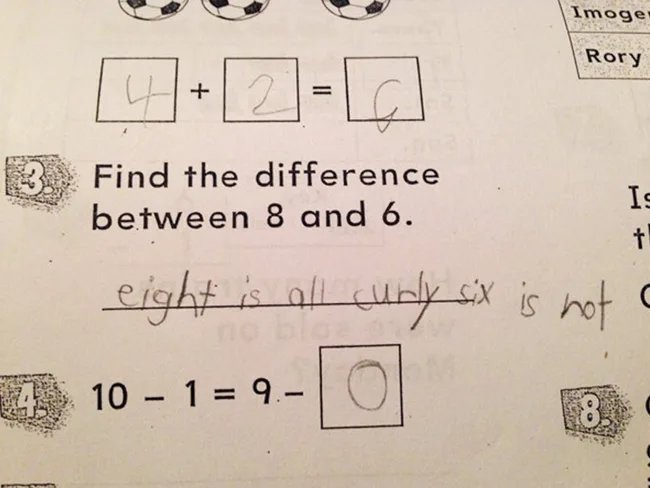 Imoge
Rory
4 + 2 = 6
3. Find the difference
between 8 and 6.
eight is all curly six is not
4. 10 – 1 = 9 – 0
8.